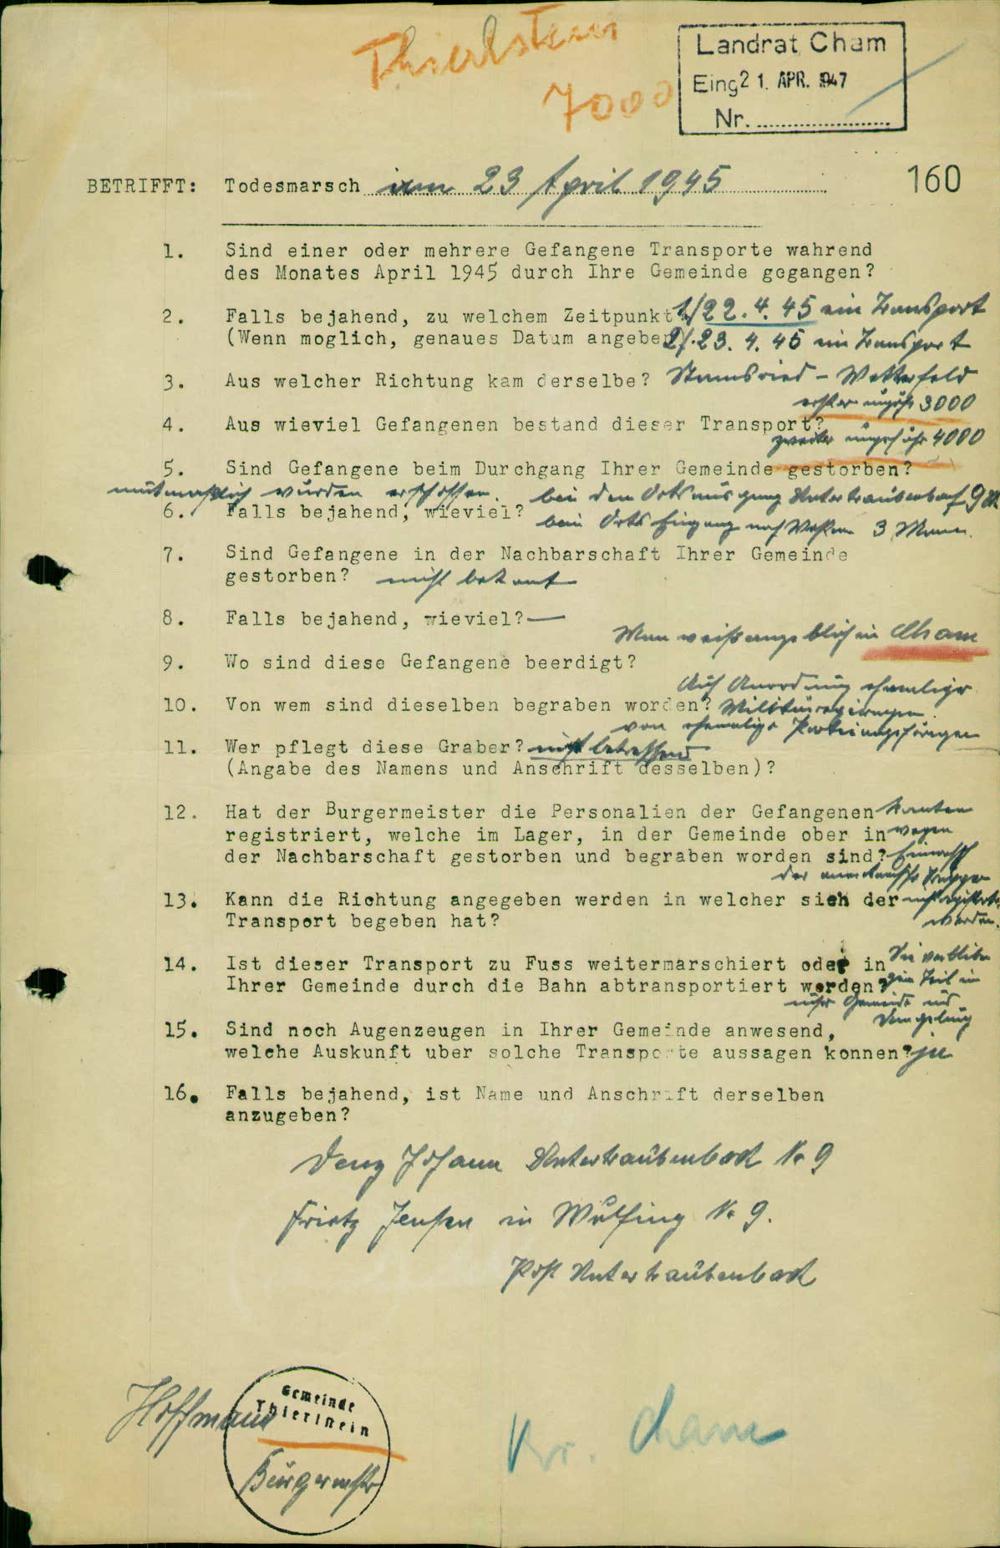 Thierlstein
7000
Landrat Cham
Eing. 21. APR. 1947
Nr. ....................
160
BETRIFFT: Todesmarsch am 23 April 1945
1. Sind einer oder mehrere Gefangene Transporte wahrend
des Monates April 1945 durch Ihre Gemeinde gegangen?
2. Falls bejahend, zu welchem Zeitpunkt? 1/ 22. 4. 45 ein Transport
(Wenn moglich, genaues Datum angeben 2/. 23. 4. 45 ein Transport
3. Aus welcher Richtung kam derselbe? Stamsried - Wetterfeld
erster ungefähr 3000
4. Aus wieviel Gefangenen bestand dieser Transport?
zweiter ungefähr 4000
5. Sind Gefangene beim Durchgang Ihrer Gemeinde gestorben?
mutmaßlich wurden erschossen. bei den Ortsausgang Untertraubenbach 9
6. Falls bejahend, wieviel?
beim Orts Eingang nach 3 Mann.
7. Sind Gefangene in der Nachbarschaft Ihrer Gemeinde
gestorben? nicht bekant
8. Falls bejahend, wieviel? —
Man weiß angeblich in Cham
9. Wo sind diese Gefangene beerdigt?
Auf Anordnung ehemalige
10. Von wem sind dieselben begraben worden? Militärregierungen
von ehemalige Parteiangehörigen
11. Wer pflegt diese Graber? nicht betreffend
(Angabe des Namens und Anschrift desselben)?
12. Hat der Burgermeister die Personalien der Gefangenen konten
registriert, welche im Lager, in der Gemeinde ober in wegen
der Nachbarschaft gestorben und begraben worden sind? Einmarsch
der amerikanische Truppen
13. Kann die Richtung angegeben werden in welcher sich der nicht registriert
Transport begeben hat? werden.
14. Ist dieser Transport zu Fuss weitermarschiert oder in Sie verblieb
Ihrer Gemeinde durch die Bahn abtransportiert worden? ein Teil in
Gemeinde und
15. Sind noch Augenzeugen in Ihrer Gemeinde anwesend, Umgebung
welche Auskunft uber solche Transporte aussagen konnen? ja
16. Falls bejahend, ist Name und Anschrift derselben
anzugeben?
Johann Untertraubenbach No 9
in Wulfing No 9.
Post Untertraubenbach
Hoffmann
Gemeinde
Thierlstein
Bürgermstr
Kr. Cham